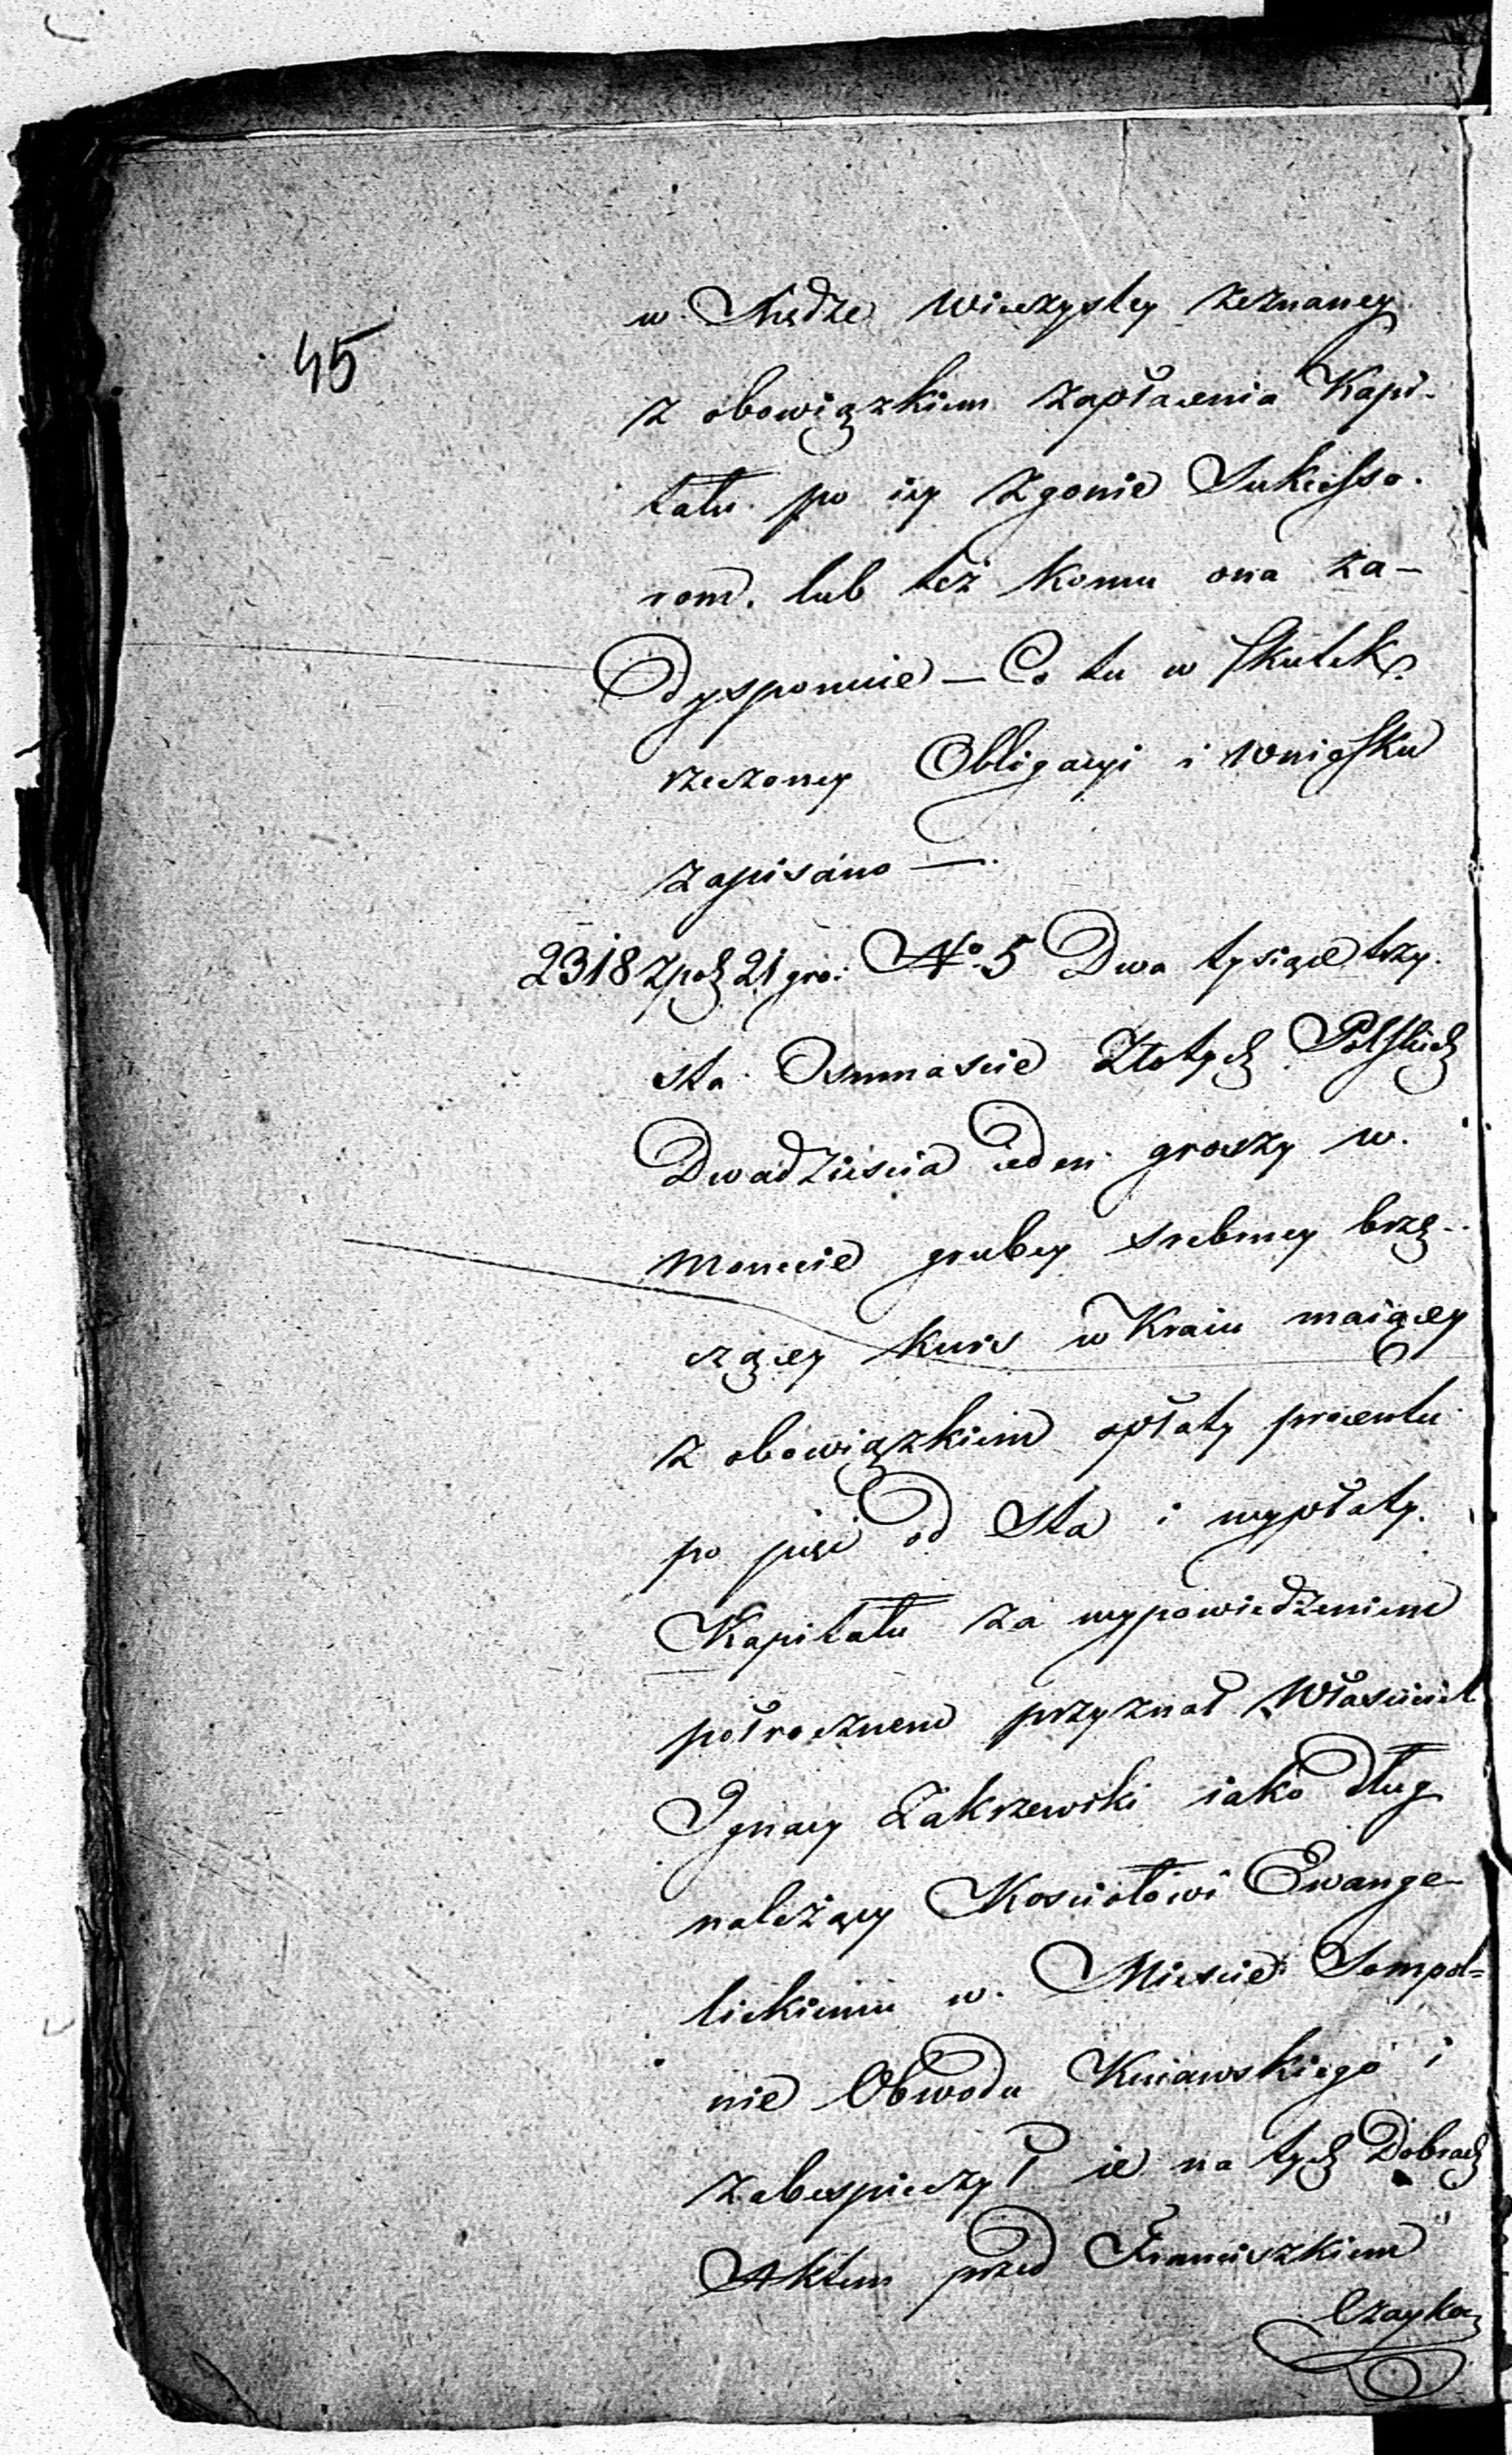 45
w Xiędze wieczystey zeznaney
z obowiązkiem zapłacenia Kapi-
tału po iey zgonie Sukcesso-
rom, lub też komu ona za-
dysponuie — Co tu w skutek
rzeczoney Obligacyi i wniosku
zapisano —.
2318 zpol 21 gro: No. 5 Dwa tysiące trzy-
sta Osmnaście Złotych Polskich
Dwadzieścia ieden groszy w
monecie grubey srebrney brzę-
czącey kurs w Kraiu maiącey
z obowiązkiem opłaty procentu
po pięć od Sta i wypłaty
Kapitału za wypowiedzeniem
półrocznem przyznał Właściciel
Ignacy Zakrzewski iako dług
należący Kościołowi Ewange-
lickiemu w Mieście Sompol-
nie Obwodu Kuiawskiego i
zabespieczył ie na tych Dobrach
Aktem przed Franciszkiem
Czayko